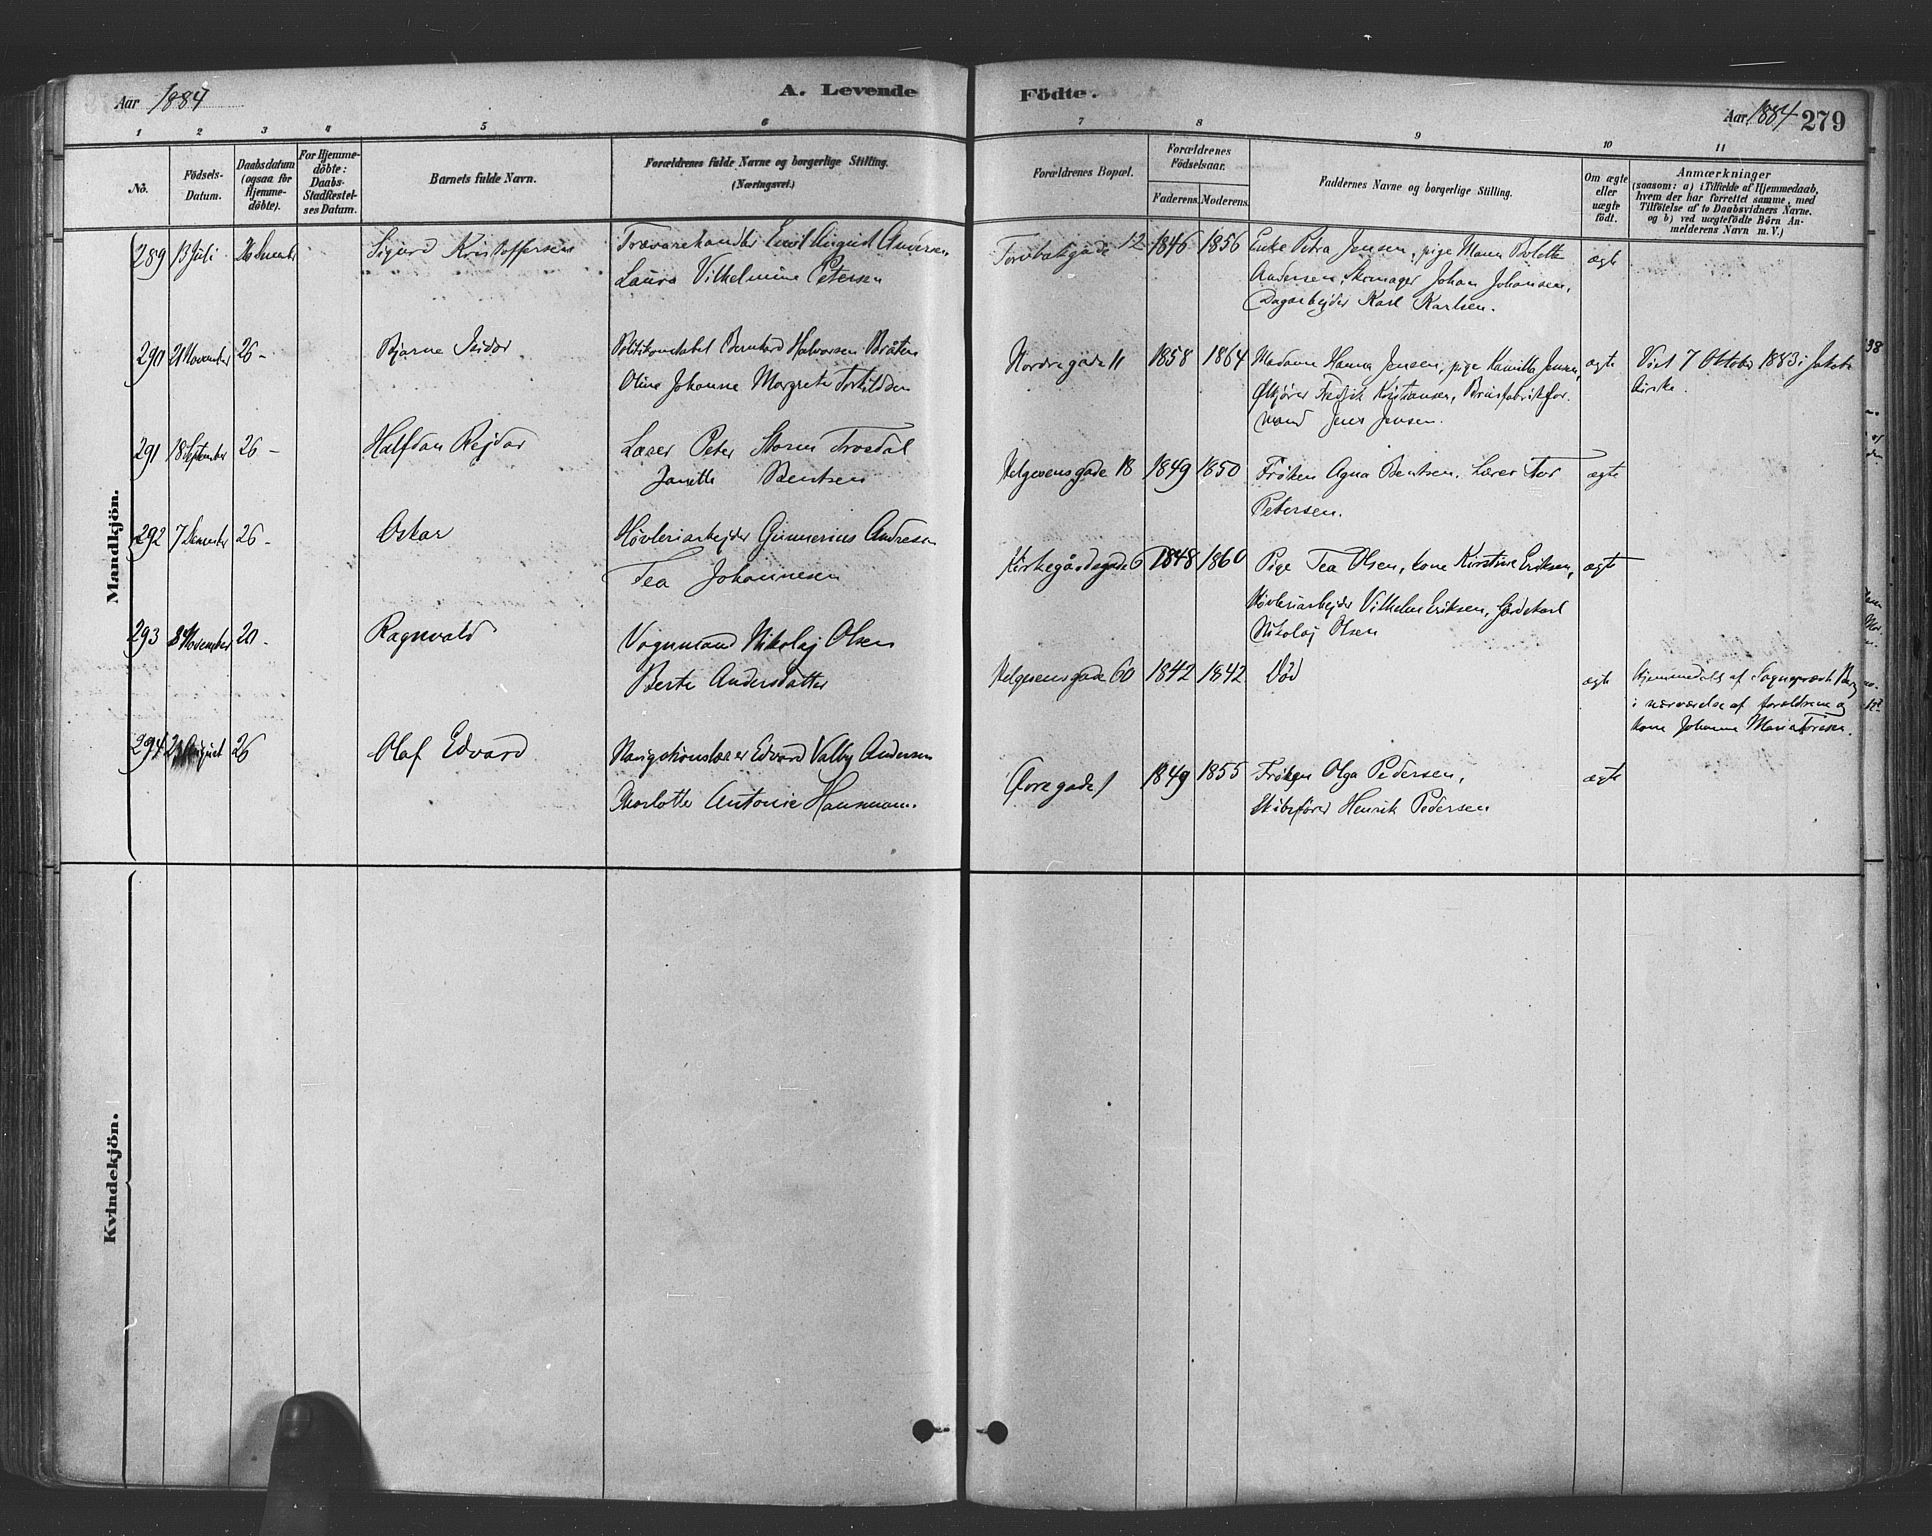 Aar 1884
A. Levende
1 2 3 4 5 6
No.
Födsels-
Datum.
Daabsdatum
(ogsaa for
Hjemme-
döbte).
For Hjemme-
döbte:
Daabs-
Stadfæstel-
ses Datum.
Barnets fulde Navn.
Forældrenes fulde Navne og borgerlige Stilling.
(Næringsvei.)
Mandkjön.
289 13 Juli 26 December Sigurd Kristoffersen Trævarehandler Emil August Andersen
Laura Vilhelmine Petersen
290 21 November 26 - Bjarne Isidor Politikonstabel Bernhard Halvorsen Bråten
Oline Johanne Margrete Torkildsen
291 18 September 26 - Halfdan Rejdar Lærer Peter Storm Trosdal
Janette Bentsen
292 7 December 26 - Oskar Høvleriarbejder Gunnerius Andresen
Tea Johannesen
293 8 November 20 - Ragnvald Vognmand Nikolaj Olsen
Berte Andersdatter
294 August 26 Olaf Edvard Navigationslærer Edvard Valby Andersen
Charlotte Antonie Hansmann.
Kvindekjön.
Födte.
Aar 1884 279
7 8 9 10 11
Forældrenes Bopæl.
Forældrenes
Födselsaar.
Faderens. Moderens.
Faddernes Navne og borgerlige Stilling.
Om ægte
eller
uægte
födt.
Anmærkninger
(saasom: a) i Tilfælde af Hjemmedaab,
hvem der har forrettet samme, med
Tilföielse af to Daabsvidners Navne.
og b) ved uægtefödte Börn An-
melderens Navn m. V.)
Torvbakgade 12 1846 1856 Enke Petra Jensen, pige Maren Bolette ægte
Andersen, Skomager Johan Johansen,
Dagarbejder Karl Karlsen.
Nordregade 11 1858 1864 Madame Hanna Jensen, pige Kamilla Jensen, ægte Viet 7 Oktober 1883 i Jakobs
Ølkjører Fredrik Kristiansen, for- Kirke.
mand Jens Jensen.
Helgesensgade 18 1849 1850 Frøken Agna Bentsen. Lærer Tor ægte
Petersen.
Kirkegårdsgade 6 1848 1860 Pige Tea Olsen, kone Kirstine Eriksen, ægte
Høvleriarbejder Vilhelm Eriksen, Gårdskarl
Nikolaj Olsen
Helgesensgade 60 1842 1842 Død ægte Hjemmedøbt af Sogneprest
i nærværelse af forældrene og
kone Johanne Maria Toresen.
Øvregade 1 1849 1855 Frøken Olga Pedersen, ægte
Skibsfører Henrik Pedersen